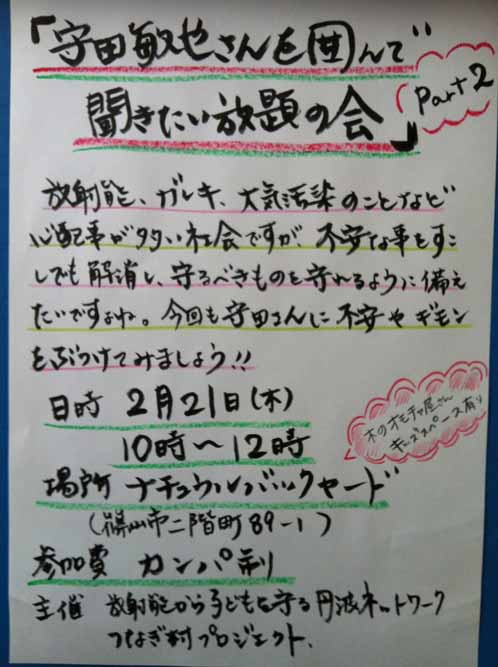 「守田敏也さんを囲んで
聞きたい放題の会」
Part 2
放射能、ガレキ、大気汚染のことなど
心配事が多い社会ですが、不安な事をすこ
しでも解消し、守るべきものを守れるように備え
たいですよね。今回も守田さんに不安やギモン
をぶつけてみましょう!!
日時 2月21日(木)
10時〜12時
木のオモチャ屋さん
キッズスペース有り
場所 ナチュラルバックヤード
(篠山市二階町89-1)
参加費 カンパ制
主催 放射能から子どもを守る丹波ネットワーク
つなぎ村プロジェクト.